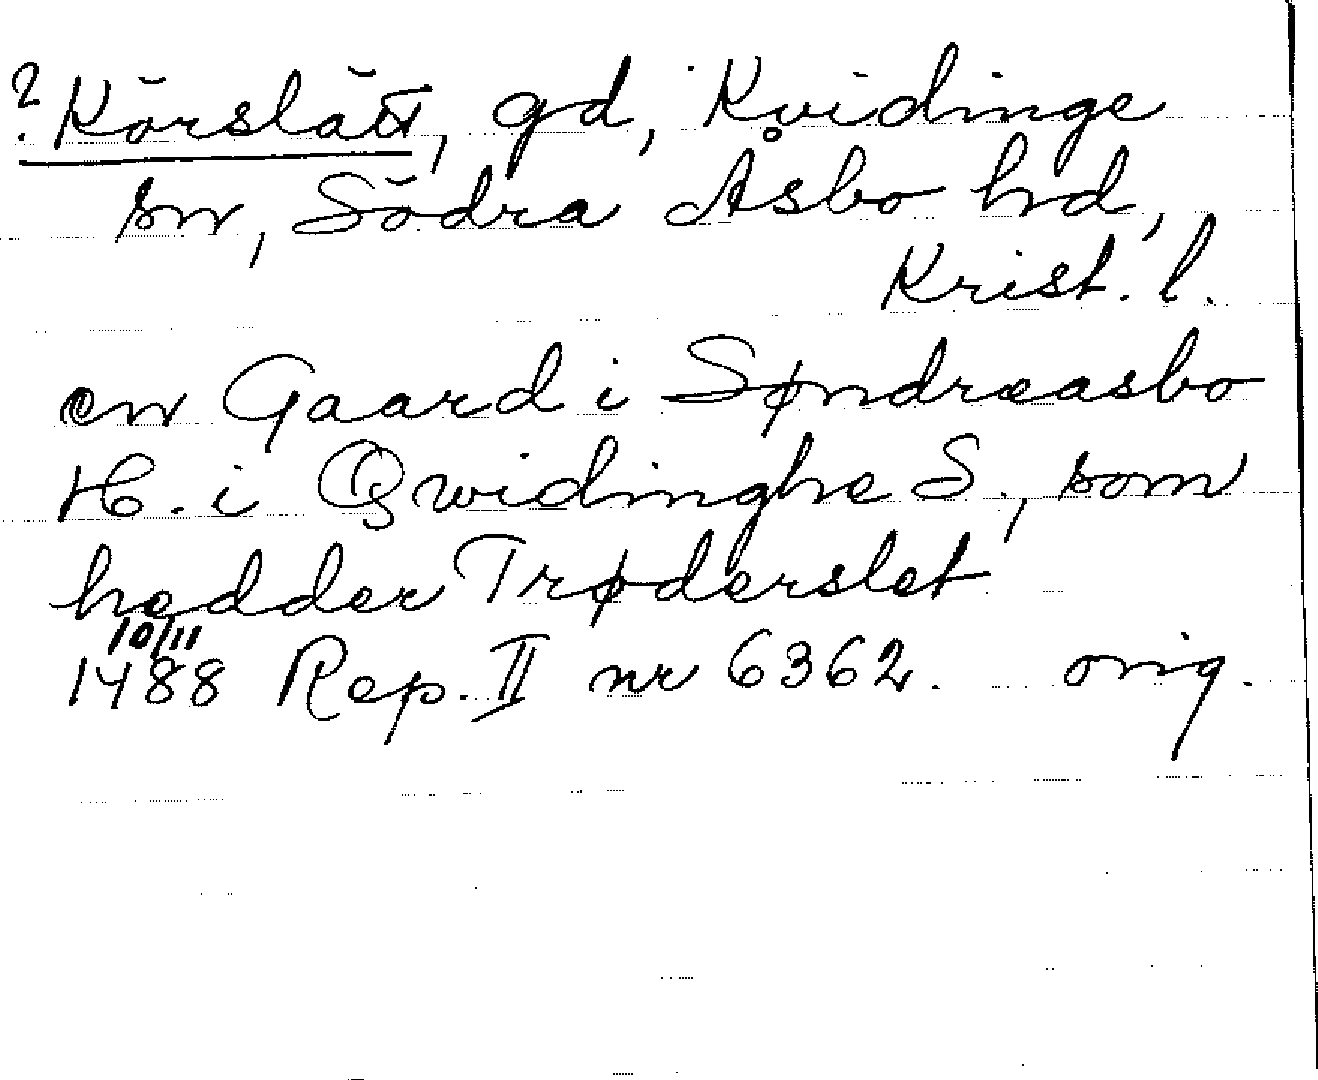 ? Körslätt, gd, Kvidinge
sn, Södra Åsbo hd,
Krist. l.
en Gaard i Søndreasbo
H. i Qwidinghe S., som
hedder Trøderslet
10/11
1488 Rep. II nr 6362. orig.